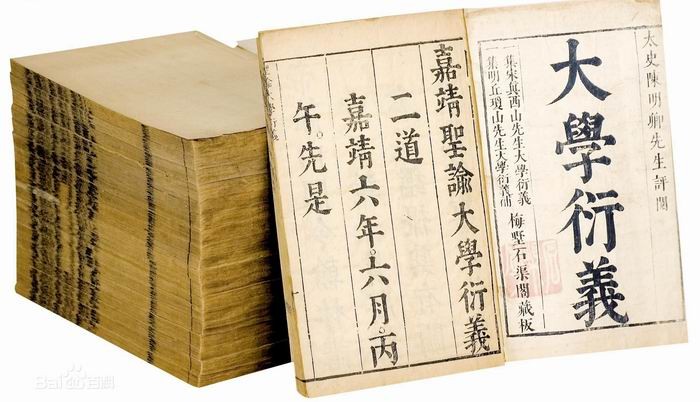 太史陳明卿先生評閱
大學衍義
集宋眞西山先生大學衍義
集明丘瓊山先生大學衍義補
梅墅石渠閣藏板
嘉靖聖諭大學衍義
二道
嘉靖六年。六月。丙
午。先是
Bai百科